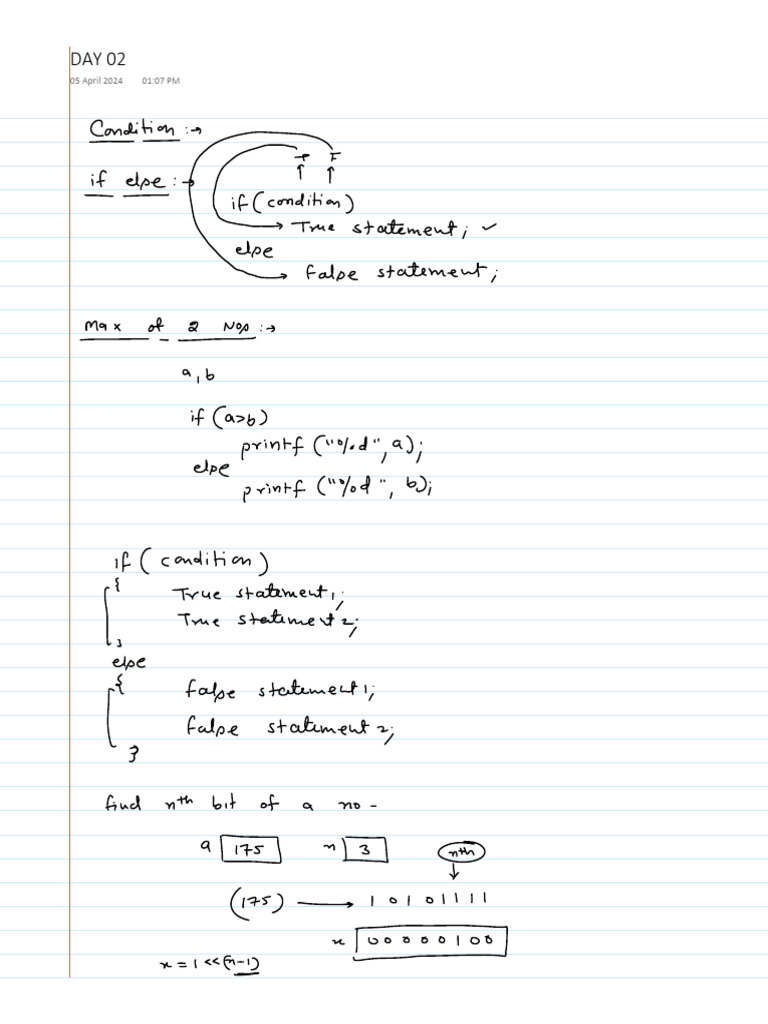 DAY 02
05 April 2024 01:07 PM
Condition :→
T F
if else :→
if (condition)
True statement; ✓
else
False statement;
Max of 2 Nos :→
a, b
if (a>b)
printf ("%d", a);
else
printf ("%d", b);
if ( condition )
{
True statement1;
True statement2;
}
else
{
false statement1;
false statement2;
}
find nth bit of a no -
a 175 n 3 nth
(175) → 1 0 1 0 1 1 1 1
x 0 0 0 0 0 1 0 0
x = 1 << (n-1)